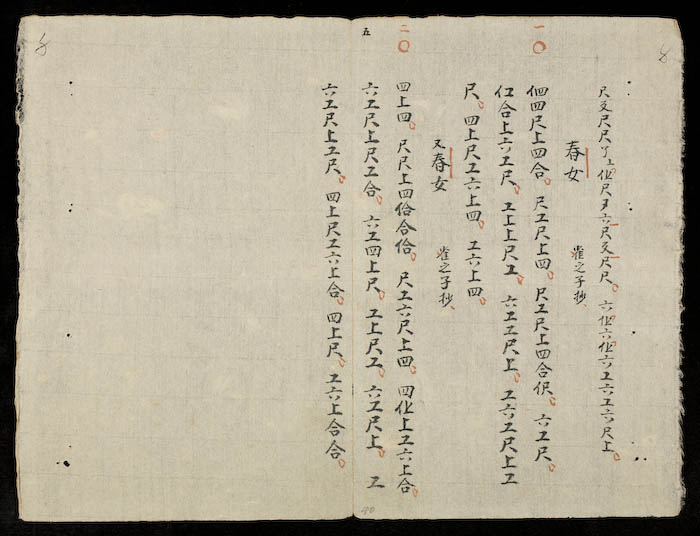 尺爻尺尺了上伬尺了六尺爻尺尺。六伬六伬六工六工六尺上
春女
雀之子抄
一〇
佃四尺上四合。尺工尺上四。尺工尺上四合伬。六工尺。
仜合上六工尺。工上上尺工。六工工尺上。工六工尺上工
尺。四上尺工六上四。工六上四。
又春女
雀之子抄
二〇
四上四。尺尺上四佮合佮。尺工六尺上四。四伬上工六上合。
五
六工尺上尺工合。六工四上尺。工上尺工。六工尺上。工
六工尺上工尺。四上尺工六上合。四上尺。工六上合合。
40